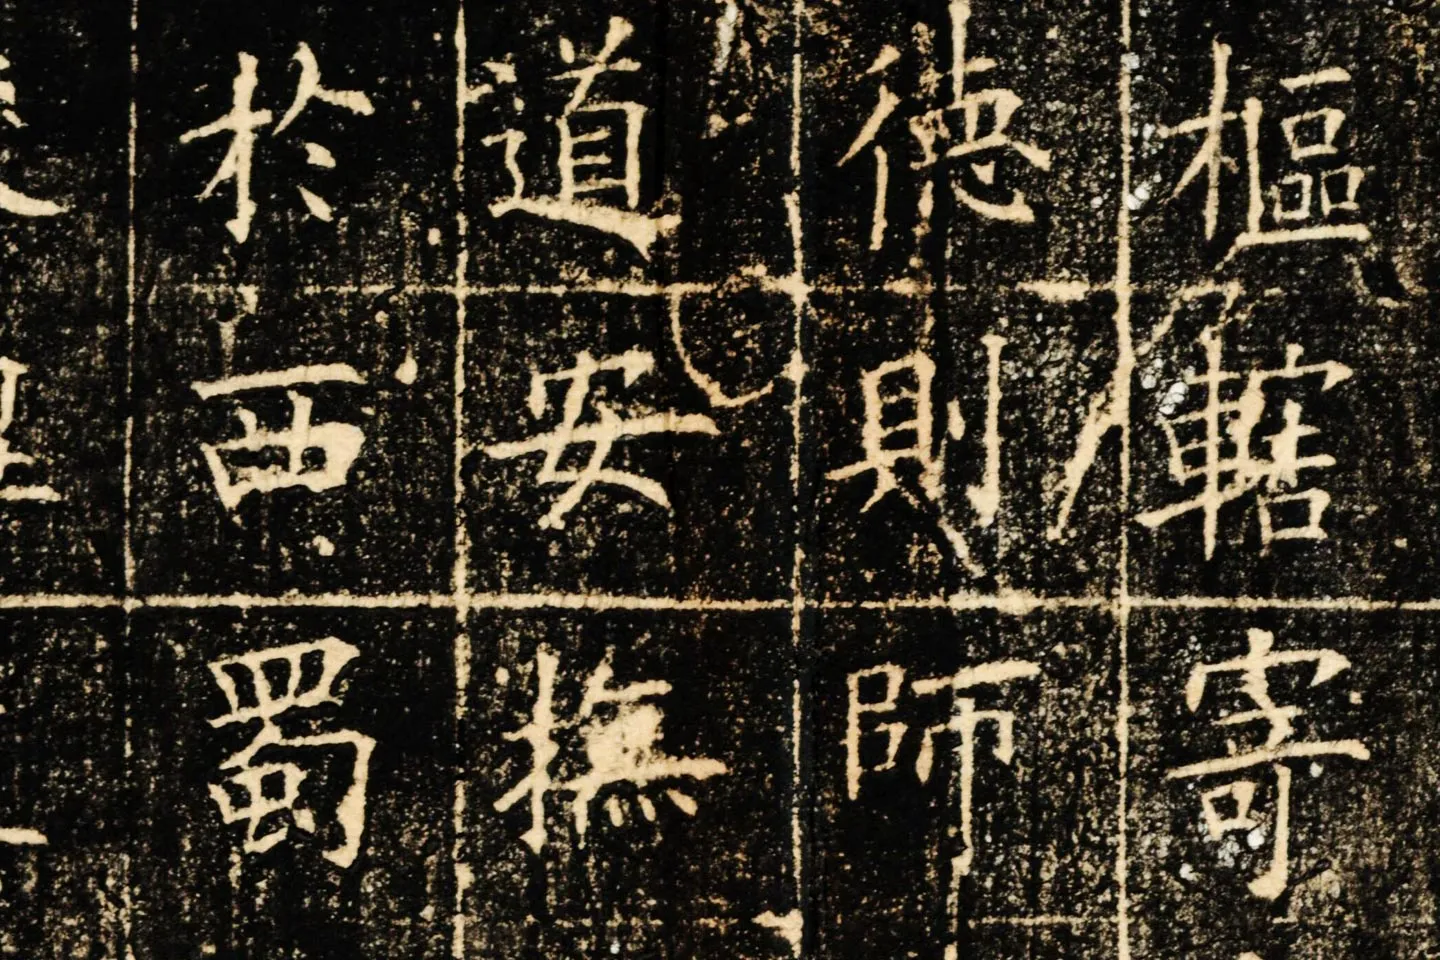 樞轄寄
德則師
道安撫
於西蜀